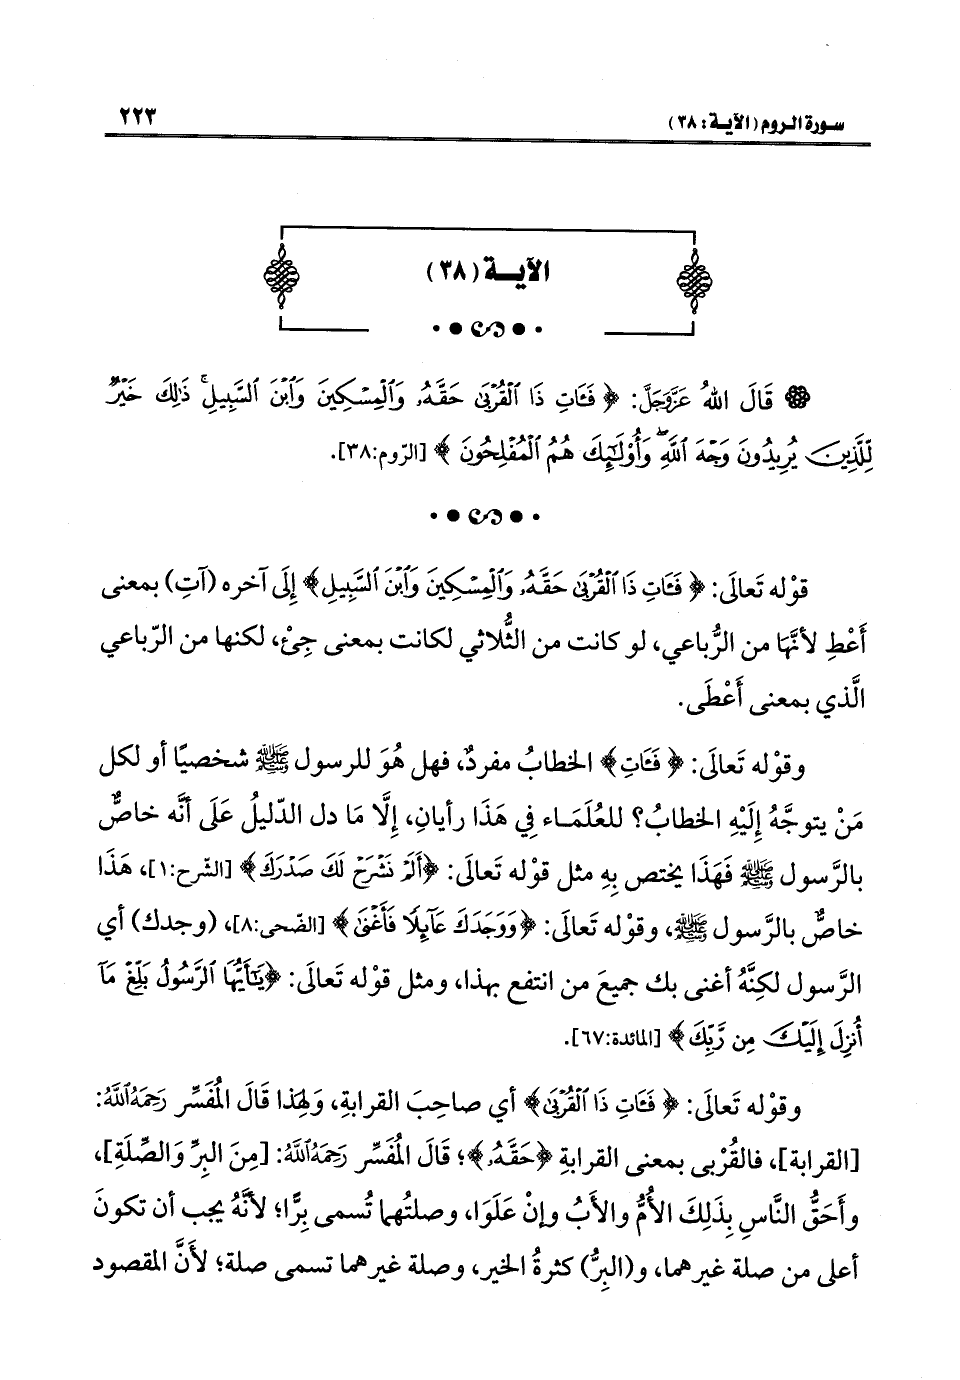 سورة الروم (الآية: ٣٨) ٢٢٣
الآية (٣٨)
قَالَ اللهُ عَزَّوَجَلَّ: ﴿ فَـَٔاتِ ذَا ٱلْقُرْبَىٰ حَقَّهُۥ وَٱلْمِسْكِينَ وَٱبْنَ ٱلسَّبِيلِ ۚ ذَٰلِكَ خَيْرٌ
لِّلَّذِينَ يُرِيدُونَ وَجْهَ ٱللَّهِ ۖ وَأُو۟لَـٰٓئِكَ هُمُ ٱلْمُفْلِحُونَ ﴾ [الرّوم:٣٨].
قوْله تَعالَى: ﴿ فَـَٔاتِ ذَا ٱلْقُرْبَىٰ حَقَّهُۥ وَٱلْمِسْكِينَ وَٱبْنَ ٱلسَّبِيلِ﴾ إِلَى آخره (آتِ) بمعنى
أَعْطِ لأنَّهَا من الرُّباعي، لو كانت من الثُّلاثي لكانت بمعنى جِئْ، لكنها من الرّباعي
الَّذي بمعنى أَعْطَى.
وقوْله تَعالَى: ﴿ فَـَٔاتِ﴾ الخطابُ مفردٌ، فهل هُوَ للرسول ﷺ شخصيًا أو لكل
مَنْ يتوجَّهُ إِلَيْهِ الخطابُ؟ للعُلَمَاء فِي هَذَا رأيانِ، إلَّا مَا دل الدّليلُ عَلَى أنَّه خاصٌّ
بالرَّسول ﷺ فَهَذَا يختص بِهِ مثل قوْله تَعالَى: ﴿أَلَمْ نَشْرَحْ لَكَ صَدْرَكَ﴾ [الشّرح:١]، هَذَا
خاصٌّ بالرَّسول ﷺ، وقوْله تَعالَى: ﴿وَوَجَدَكَ عَآئِلًا فَأَغْنَىٰ﴾ [الضّحى:٨]، (وجدك) أي
الرَّسول لكِنَّهُ أغنى بك جميعَ من انتفع بهذا، ومثل قوْله تَعالَى: ﴿يَـٰٓأَيُّهَا ٱلرَّسُولُ بَلِّغْ مَآ
أُنزِلَ إِلَيْكَ مِن رَّبِّكَ﴾ [المائدة:٦٧].
وقوْله تَعالَى: ﴿ فَـَٔاتِ ذَا ٱلْقُرْبَىٰ﴾ أي صاحِبَ القرابةِ، وَلهَذا قَالَ المُفَسِّر رَحِمَهُ اللَّهُ:
[القرابة]، فالقُرْبى بمعنى القرابةِ ﴿حَقَّهُۥ﴾؛ قَالَ المُفَسِّر رَحِمَهُ اللَّهُ: [مِنَ البِرِّ وَالصِّلَةِ]،
وأَحَقُّ النَّاسِ بِذَلِكَ الأُمُّ والأَبُ وإنْ عَلَوَا، وصلتُهما تُسمى برًّا؛ لأنَّهُ يجب أن تكونَ
أعلى من صلة غيرهما، و(البِرُّ) كثرةُ الخير، وصلة غيرهما تسمى صلة؛ لأنَّ المقصود